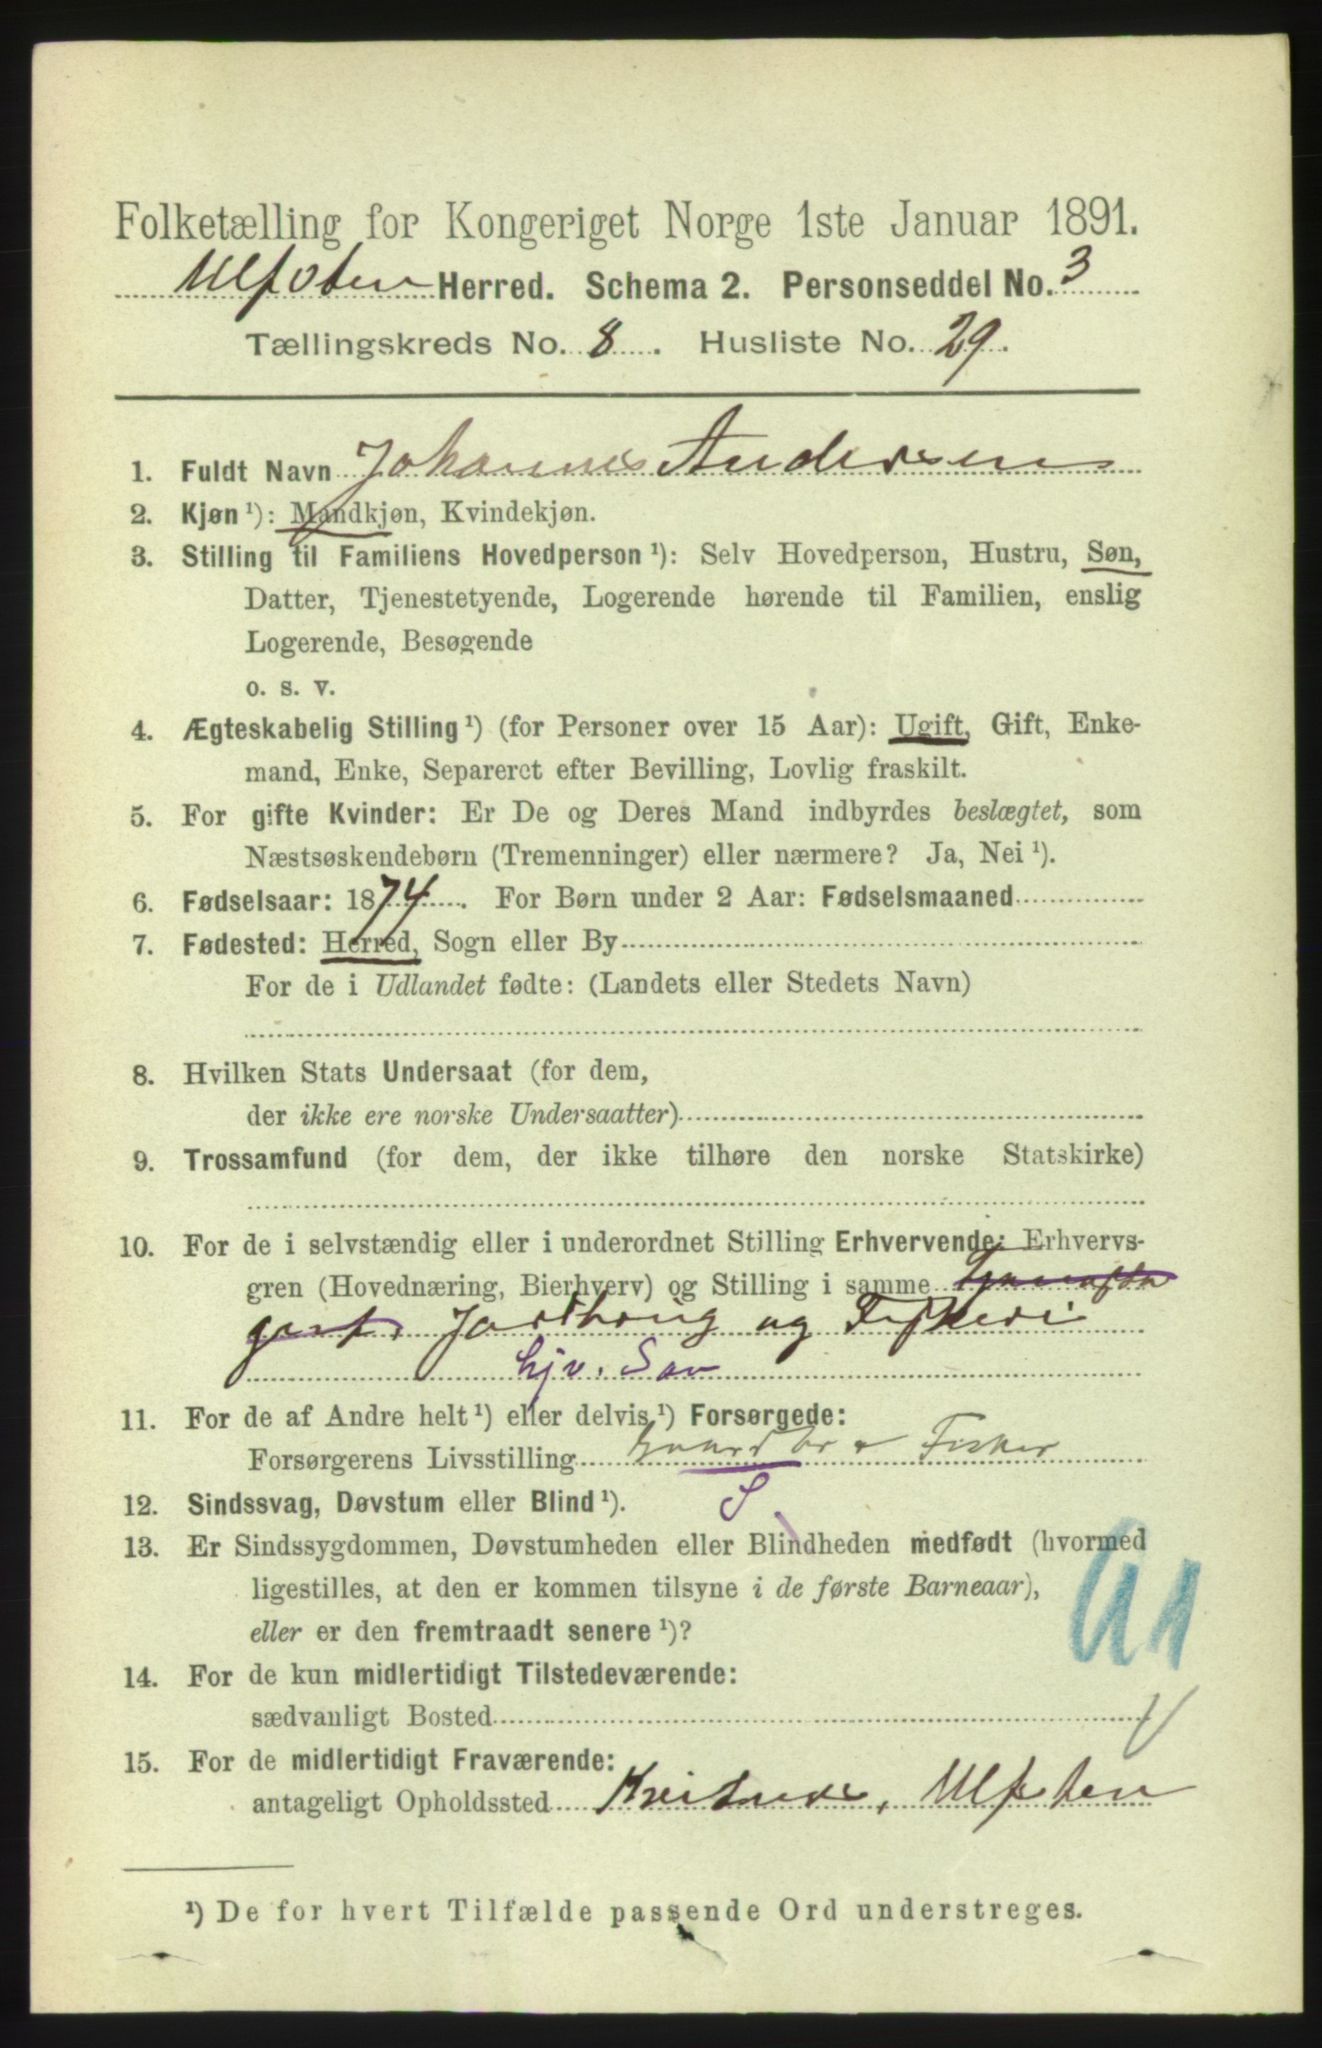 Folketælling for Kongeriget Norge 1ste Januar 1891.
Ulfoten Herred. Schema 2. Personseddel No. 3
Tællingskreds No. 8. Husliste No. 29.
1. Fuldt Navn Johannes Andersen
2. Kjøn ¹): Mandkjøn, Kvindekjøn.
3. Stilling til Familiens Hovedperson ¹): Selv Hovedperson, Hustru, Søn,
Datter, Tjenestetyende, Logerende hørende til Familien, enslig
Logerende, Besøgende
o. s. v.
4. Ægteskabelig Stilling ¹) (for Personer over 15 Aar): Ugift, Gift, Enke-
mand, Enke, Separeret efter Bevilling, Lovlig fraskilt.
5. For gifte Kvinder: Er De og Deres Mand indbyrdes beslægtet, som
Næstsøskendebørn (Tremenninger) eller nærmere? Ja, Nei ¹).
6. Fødselsaar: 1874. For Børn under 2 Aar: Fødselsmaaned
7. Fødested: Herred, Sogn eller By
For de i Udlandet fødte: (Landets eller Stedets Navn)
8. Hvilken Stats Undersaat (for dem,
der ikke ere norske Undersaatter)
9. Trossamfund (for dem, der ikke tilhøre den norske Statskirke)
10. For de i selvstændig eller i underordnet Stilling Erhvervende: Erhvervs-
gren (Hovednæring, Bierhverv) og Stilling i samme
Jordbrug og Fiskeri
hjv. Søn
11. For de af Andre helt ¹) eller delvis ¹) Forsørgede:
Forsørgerens Livsstilling Gaardbr o Fisker
S
12. Sindssvag, Døvstum eller Blind ¹).
13. Er Sindssygdommen, Døvstumheden eller Blindheden medfødt (hvormed
ligestilles, at den er kommen tilsyne i de første Barneaar),
eller er den fremtraadt senere ¹)?
14. For de kun midlertidigt Tilstedeværende:
sædvanligt Bosted
15. For de midlertidigt Fraværende:
antageligt Opholdssted Ulfoten
¹) De for hvert Tilfælde passende Ord understreges.